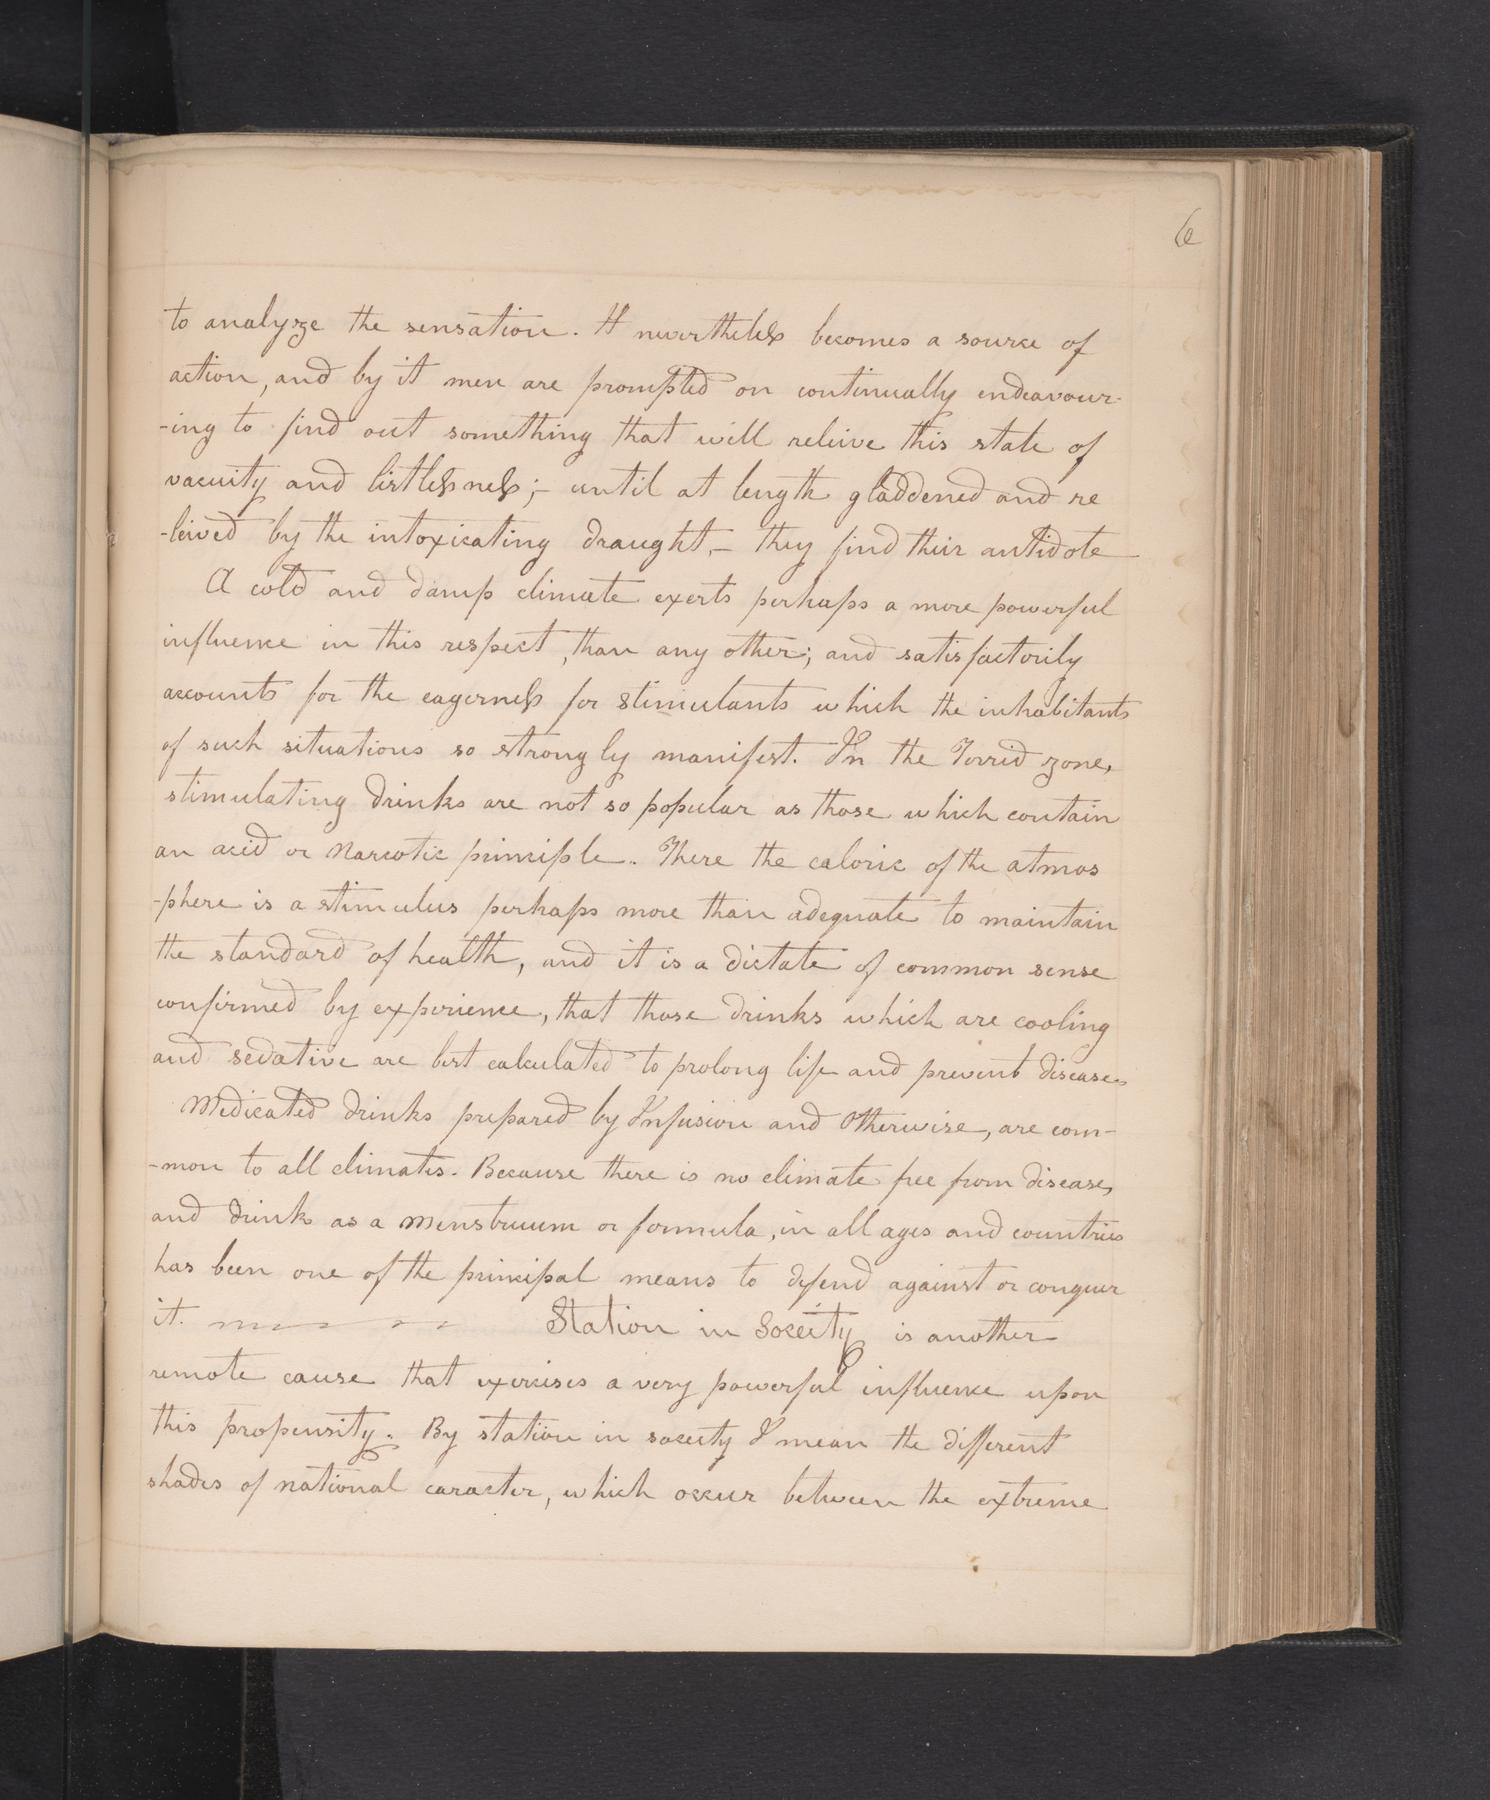 6
to analyze the sensation. It nevertheless becomes a source of
action, and by it men are prompted on continually endeavour-
-ing to find out something that will releive this state of
vacuity and listlessness;- until at length gladdened and re
-leived by the intoxicating draught,- they find their antidote
A cold and damp climate exerts perhaps a more powerful
influence in this respect, than any other; and satisfactorily
accounts for the eagerness for stimulants which the inhabitants
of such situations so strongly manifest. In the Torrid zone,
stimulating drinks are not so popular as those which contain
an acid or Narcotic principle. There the caloric of the atmos
-phere is a stimulus perhaps more than adequate to maintain
the standard of health, and it is a dictate of common sense
confirmed by experience, that those drinks which are cooling
and sedative are best calculated to prolong life and prevent disease.
Medicated drinks prepared by Infusion and Otherwise, are com-
-mon to all climates. Because there is no climate free from disease,
and drink as a Menstruum or formula, in all ages and countries
has been one of the principal means to defend against or conquer
it. Station in Soceity is another
remote cause that exercises a very powerful influence upon
this propensity. By station in soceity I mean the different
shades of national caracter, which occur between the extreme